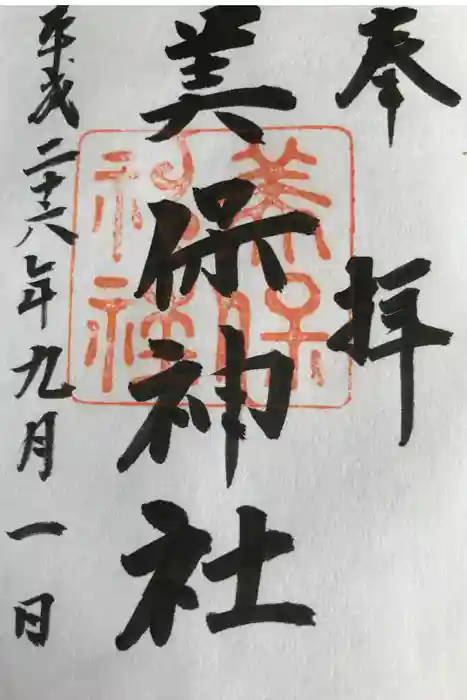 奉拝
美保神社
平成二十六年九月一日
美保神社